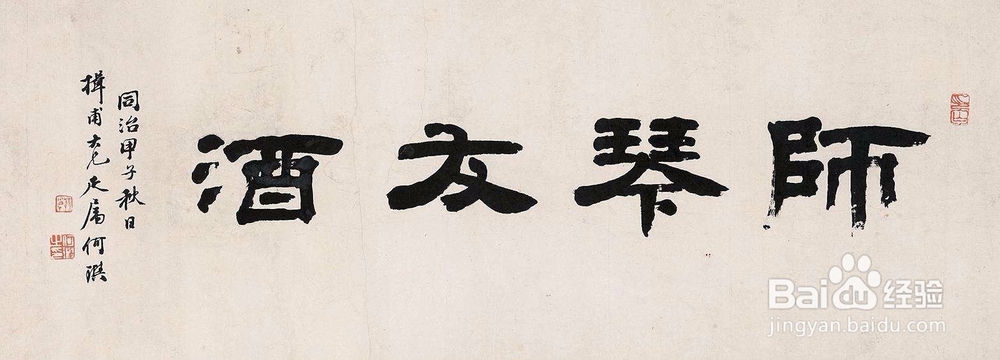 師琴友酒
同治甲子秋日
揖甫大兄属何
Baidu 经验
jingyan.baidu.com